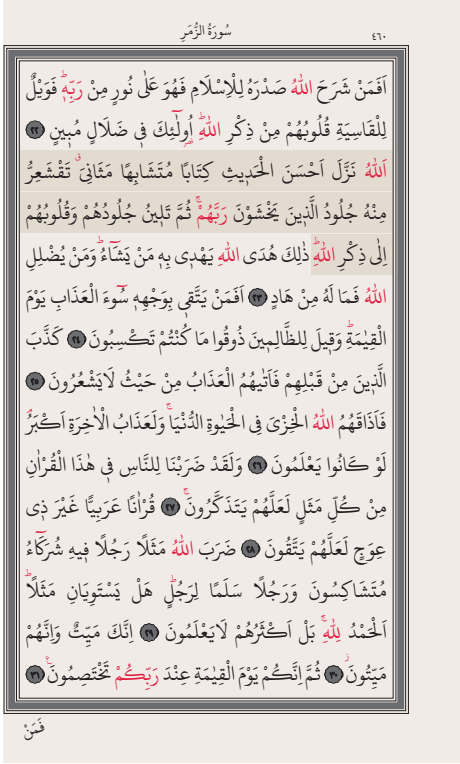 سُورَةُ الزُّمَرِ ٤٦٠
اَفَمَنْ شَرَحَ اللّٰهُ صَدْرَهُ لِلْاِسْلَامِ فَهُوَ عَلٰى نُورٍ مِنْ رَبِّهٖۜ فَوَيْلٌ
لِلْقَاسِيَةِ قُلُوبُهُمْ مِنْ ذِكْرِ اللّٰهِۜ اُو۬لٰٓئِكَ فٖى ضَلَالٍ مُبٖينٍ ٢٢
اَللّٰهُ نَزَّلَ اَحْسَنَ الْحَدٖيثِ كِتَابًا مُتَشَابِهًا مَثَانِىَۗ تَقْشَعِرُّ
مِنْهُ جُلُودُ الَّذٖينَ يَخْشَوْنَ رَبَّهُمْۚ ثُمَّ تَلٖينُ جُلُودُهُمْ وَقُلُوبُهُمْ
اِلٰى ذِكْرِ اللّٰهِۜ ذٰلِكَ هُدَى اللّٰهِ يَهْدٖى بِهٖ مَنْ يَشَٓاءُۜ وَمَنْ يُضْلِلِ
اللّٰهُ فَمَا لَهُ مِنْ هَادٍ ٢٣ اَفَمَنْ يَتَّقٖى بِوَجْهِهٖ سُٓوءَ الْعَذَابِ يَوْمَ
الْقِيٰمَةِۜ وَقٖيلَ لِلظَّالِمٖينَ ذُوقُوا مَا كُنْتُمْ تَكْسِبُونَ ٢٤ كَذَّبَ
الَّذٖينَ مِنْ قَبْلِهِمْ فَاَتٰيهُمُ الْعَذَابُ مِنْ حَيْثُ لَايَشْعُرُونَ ٢٥
فَاَذَاقَهُمُ اللّٰهُ الْخِزْىَ فِى الْحَيٰوةِ الدُّنْيَاۚ وَلَعَذَابُ الْاٰخِرَةِ اَكْبَرُۢ
لَوْ كَانُوا يَعْلَمُونَ ٢٦ وَلَقَدْ ضَرَبْنَا لِلنَّاسِ فٖى هٰذَا الْقُرْاٰنِ
مِنْ كُلِّ مَثَلٍ لَعَلَّهُمْ يَتَذَكَّرُونَۚ ٢٧ قُرْاٰنًا عَرَبِيًّا غَيْرَ ذٖى
عِوَجٍ لَعَلَّهُمْ يَتَّقُونَ ٢٨ ضَرَبَ اللّٰهُ مَثَلًا رَجُلًا فٖيهِ شُرَكَٓاءُ
مُتَشَاكِسُونَ وَرَجُلًا سَلَمًا لِرَجُلٍۜ هَلْ يَسْتَوِيَانِ مَثَلًاۜ
اَلْحَمْدُ لِلّٰهِۚ بَلْ اَكْثَرُهُمْ لَايَعْلَمُونَ ٢٩ اِنَّكَ مَيِّتٌ وَاِنَّهُمْ
مَيِّتُونَۘ ٣٠ ثُمَّ اِنَّكُمْ يَوْمَ الْقِيٰمَةِ عِنْدَ رَبِّكُمْ تَخْتَصِمُونَ۟ ٣١
فَمَنْ